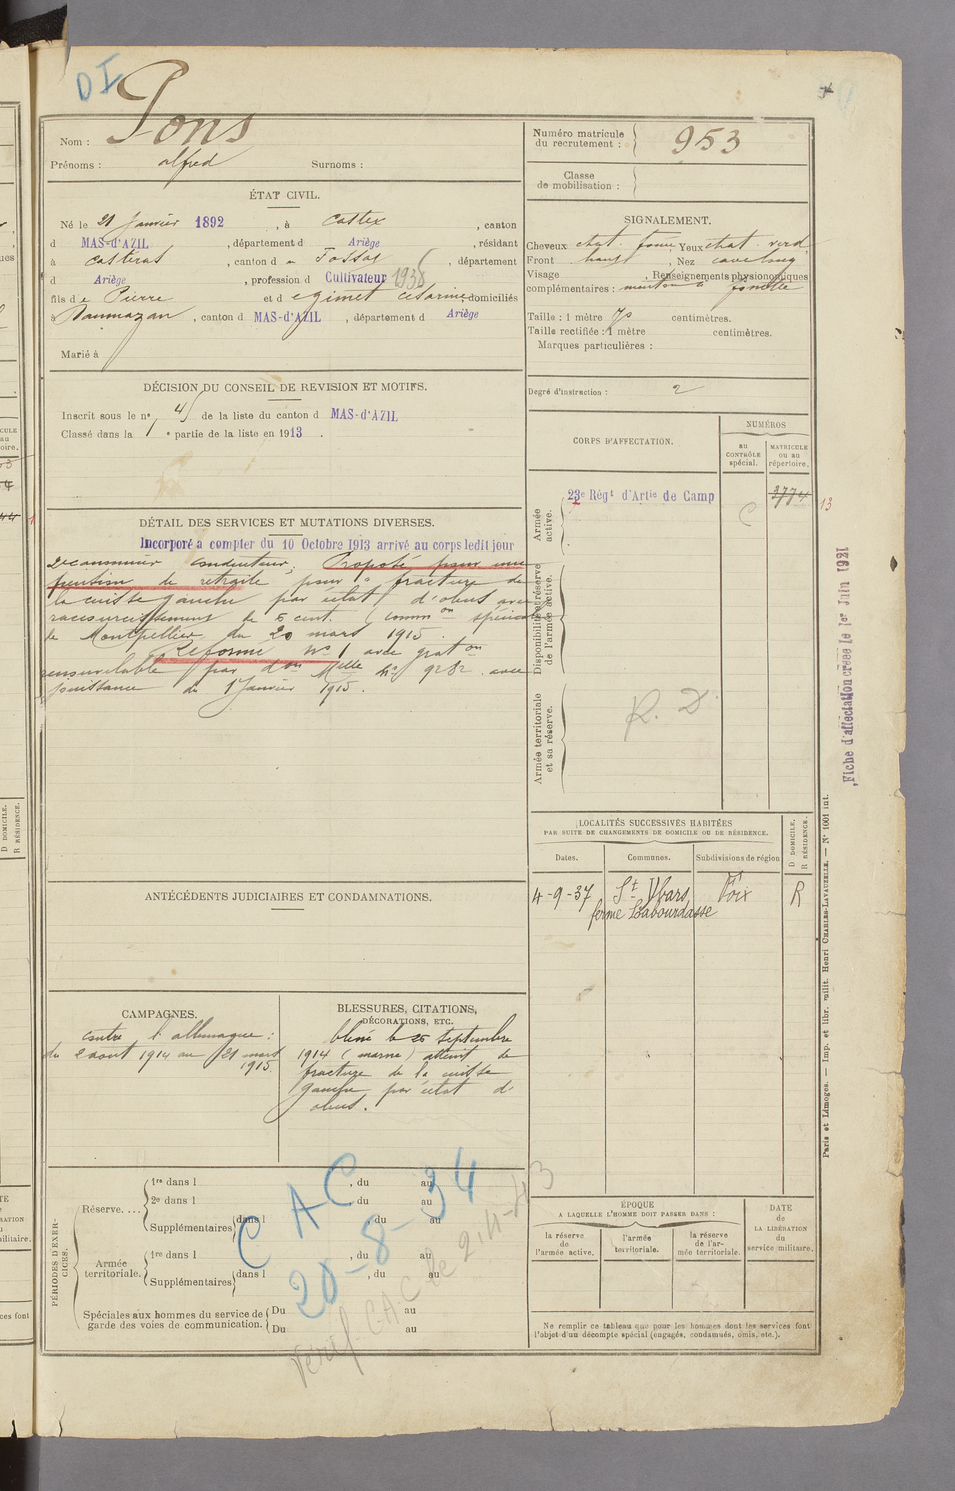 DI
Nom : Pons
Prénoms : alfred Surnoms :
Numéro matricule
du recrutement : 953
Classe
de mobilisation :
ÉTAT CIVIL.
Né le 21 Janvier 1892, à Castex, canton
d MAS-d'AZIL, département d Ariège, résidant
à Casteras, canton d u Fossat, département
d Ariège, profession d Cultivateur 1938
fils de Pierre et d egimet Césarine domiciliés
à Daumazan, canton d MAS-d'AZIL, département d Ariège
Marié à
SIGNALEMENT.
Cheveux chat. foncé Yeux chat. verd
Front haut, Nez cave long
Visage , Renseignements physionomiques
complémentaires : menton à fossette
Taille : 1 mètre 70 centimètres.
Taille rectifiée : 1 mètre centimètres.
Marques particulières :
Degré d'instruction : 2
DÉCISION DU CONSEIL DE REVISION ET MOTIFS.
Inscrit sous le n° 4 de la liste du canton d MAS-d'AZIL
Classé dans la 1e partie de la liste en 1913.
CORPS D'AFFECTATION.
NUMÉROS
au
CONTRÔLE
spécial.
MATRICULE
ou au
répertoire.
Armée
active.
23e Régt d'Artie de Camp
3774
13
Disponibilité et réserve
de l'armée active.
Armée territoriale
et sa réserve.
R. D.
Fiche d'affectation créée le 1er Juin 1921
DÉTAIL DES SERVICES ET MUTATIONS DIVERSES.
Incorporé à compter du 10 Octobre 1913 arrivé au corps ledit jour
2e canonnier conducteur. Proposé pour une
pension de retraite pour "fracture de
la cuisse gauche par éclat d'obus avec
raccourcissement de 5 cent. (Common spéciale
de Montpellier du 20 mars 1915.
Réformé N° 1 avec graton
renouvelable par don Melle n° 9282 avec
jouissance du 1 Janvier 1915.
LOCALITÉS SUCCESSIVES HABITÉES
PAR SUITE DE CHANGEMENTS DE DOMICILE OU DE RÉSIDENCE.
Dates. Communes. Subdivisions de région
D DOMICILE.
R RÉSIDENCE.
4-9-37 St Ybars Foix R
ferme Labourdasse
ANTÉCÉDENTS JUDICIAIRES ET CONDAMNATIONS.
CAMPAGNES.
contre l'allemagne :
du 2 aout 1914 au 21 mars
1915
BLESSURES, CITATIONS,
DÉCORATIONS, ETC.
blessé le 25 septembre
1914 (marne) atteint de
fracture de la cuisse
gauche par éclat d'
obus.
PÉRIODES D'EXERCICES.
Réserve....
1re dans l , du au
2e dans l , du au
Supplémentaires dans l , du au
Armée
territoriale.
1re dans l , du au
Supplémentaires dans l , du au
Spéciales aux hommes du service de
garde des voies de communication.
Du au
Du au
CAC
20-8-34
Vérif CAC le 2.11-43
ÉPOQUE
A LAQUELLE L'HOMME DOIT PASSER DANS :
la réserve
de
l'armée active.
l'armée
territoriale.
la réserve
de l'ar-
mée territoriale.
DATE
de
LA LIBÉRATION
du
service militaire.
Ne remplir ce tableau que pour les hommes dont les services font
l'objet d'un décompte spécial (engagés, condamnés, omis, etc.).
Paris et Limoges. — Imp. et libr. milit. Henri CHARLES-LAVAUZELLE. — N° 1001 int.